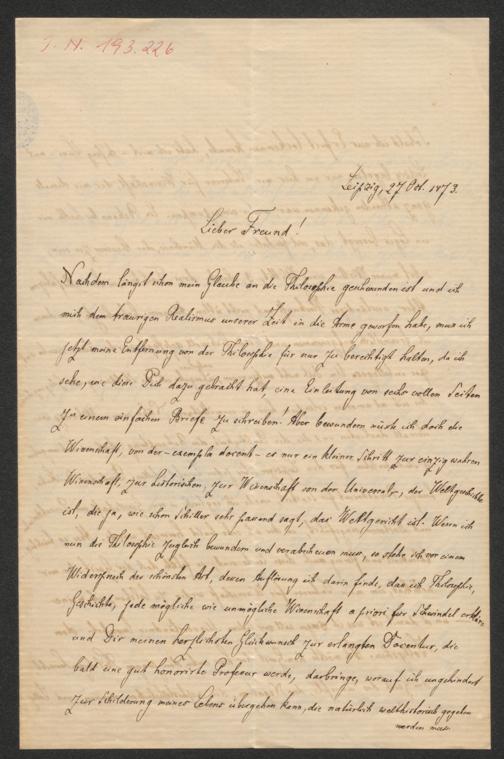 J. N. 193.226
Leipzig, 27 Oct. 1873.
Lieber Freund!
Nachdem längst schon mein Glaube an die Philosophie geschwunden ist und ich
mich dem traurigen Realismus unserer Zeit in die Arme geworfen habe, muss ich
jetzt meine Entfernung von der Philosophie für nur zu berechtigt halten, da ich
sehe, wie diese Dich dazu gebracht hat, eine Einleitung von sechs vollen Seiten
zu einem einfachen Briefe zu schreiben! Aber bewundern muss ich doch die
Wissenschaft, von der - exempla docent - es nur ein kleiner Schritt zur einzig wahren
Wissenschaft, zur historischen, zur Wissenschaft von der Universal-, der Weltgeschichte
ist, die ja, wie schon Schiller sehr passend sagt, das Weltgericht ist. Wenn ich
nun die Philosophie zugleich bewundern und verabscheuen muss, so stehe ich vor einem
Widerspruch der schönsten Art, dessen Auflösung ich darin finde, dass ich Philosophie,
Geschichte, jede mögliche wie unmögliche Wissenschaft a priori für Schwindel erkläre
und Dir meinen herzlichsten Glückwunsch zur erlangten Docentur, die
bald eine gut honorirte Professur werde, darbringe, worauf ich ungehindert
zur Schilderung meines Lebens übergehen kann, die natürlich welthistorisch gegeben
werden muss.